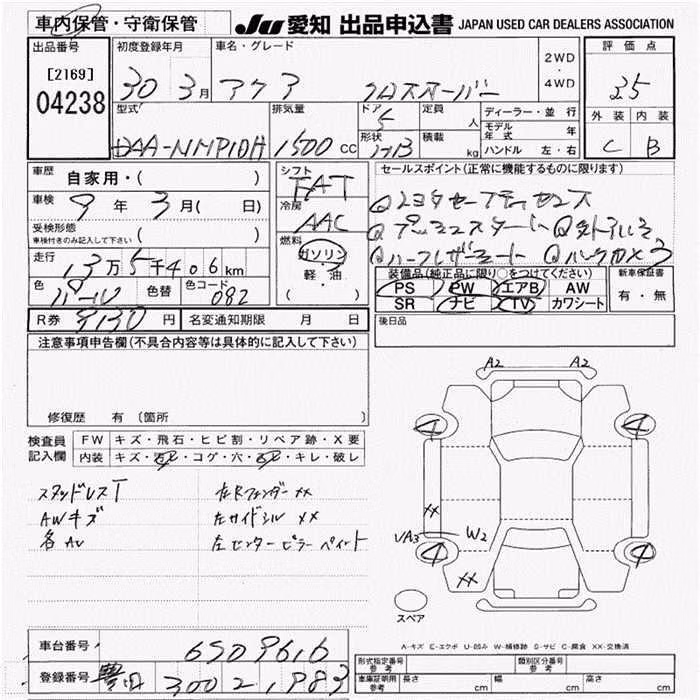 車内保管・守衛保管
JU 愛知 出品申込書 JAPAN USED CAR DEALERS ASSOCIATION
出品番号
[2169]
04238
初度登録年月
30 3月
車名・グレード
アクア クロスオーバー
2WD
・
4WD
評価点
3.5
外装 内装
C B
型式
DAA-NHP10H
排気量
1500 CC
ドア
5
形状
HB
定員
人
積載
kg
ディーラー・並行
モデル年式 年
ハンドル 左・右
車歴
自家用・( )
車検
9年 3月( 日)
受検形態
車検付きのみ記入して下さい ( )
走行
13万5千406km
色
パール
色替
色コード
082
シフト
FAT
冷房
AAC
燃料
ガソリン
・
軽・油
( )
セールスポイント(正常に機能するものに限ります)
①トヨタセーフティセンス
②プッシュスタート ③外アルミ
④ハーフレザーシート ⑤バックカメラ
装備品(純正品に限り○をつけてください)
PS PW エアB AW
SR ナビ TV カワシート
新車保証書
有・無
R券 9130円
名変通知期限 月 日
後日品
注意事項申告欄(不具合内容等は具体的に記入して下さい)
修復歴 有 〔箇所 〕
検査員
記入欄
FW キズ・飛石・ヒビ割・リペア跡・X要
内装 キズ・汚レ・コゲ・穴・ ・キレ・破レ
スタッドレスT
AWキズ
各AU
左Rフェンダー XX
左サイドシル XX
左センターピラー ペイント
A2 A2
4 4
XX
VA3 W2
4 4
XX
スペア
A-キズ E-エクボ U-凹み W-補修跡 S-サビ C-腐食 XX-交換済
車台番号
6509616
登録番号
豊田 300 2 1983
形式指定番号
参考
類別区分番号
参考
車庫証明用
参考
長さ cm 幅 cm 高さ cm